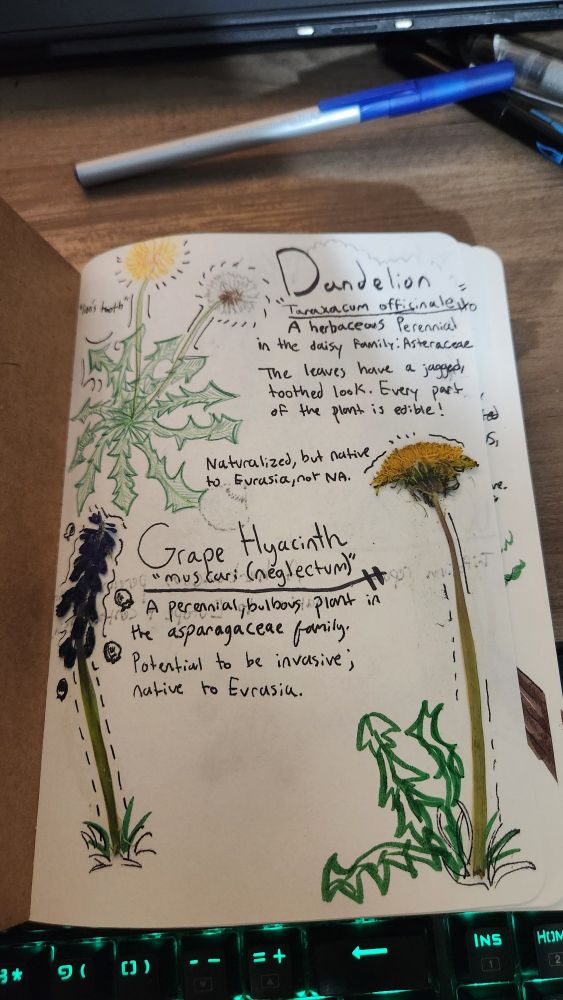 Dandelion
"Taraxacum officinale"
tooth"
A herbaceous Perennial
in the daisy family: Asteraceae
The leaves have a jagged,
toothed look. Every part
of the plant is edible!
Naturalized, but native
to Eurasia, not NA.
Grape Hyacinth
"muscari (neglectum)"
A perennial, bulbous plant in
the asparagaceae family.
Potential to be invasive;
native to Eurasia.
8*
9(
[0)
--
=+
←
INS
1
HOM
2